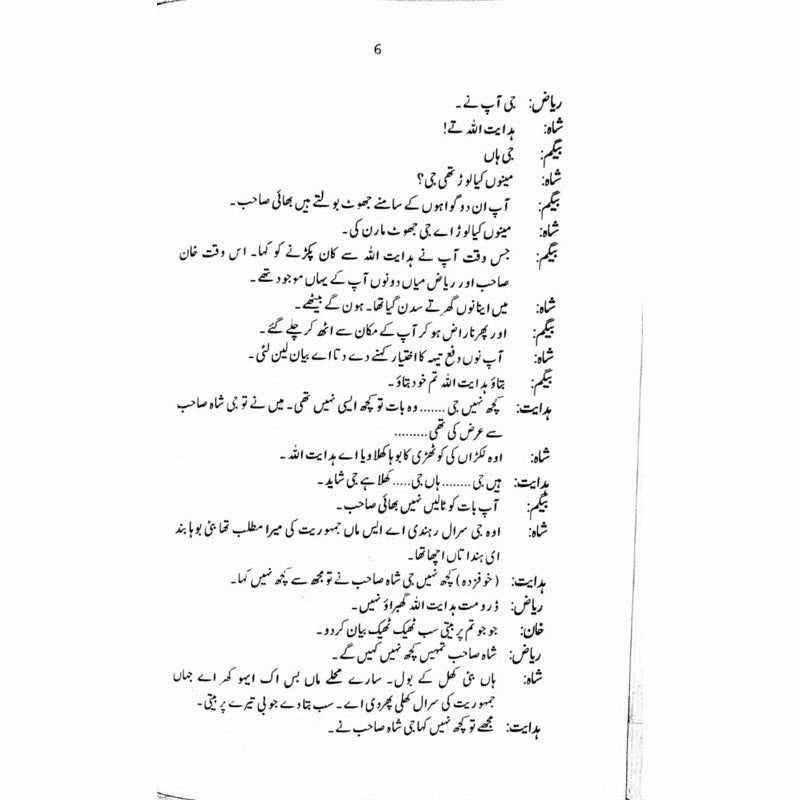 6
ریاض: جی آپ نے۔
شاہ: ہدایت اللہ تے!
بیگم: جی ہاں
شاہ: مینوں کیا لوڑ تھی جی؟
بیگم: آپ ان دو گواہوں کے سامنے جھوٹ بولتے ہیں بھائی صاحب۔
شاہ: مینوں کیا لوڑ اے جی جھوٹ مارن کی۔
بیگم: جس وقت آپ نے ہدایت اللہ سے کان پکڑنے کو کہا۔ اس وقت خان
صاحب اور ریاض میاں دونوں آپ کے یہاں موجود تھے۔
شاہ: میں اینانوں گھر تے سدن گیا تھا۔ ہون گے بیٹھے۔
بیگم: اور پھر ناراض ہو کر آپ کے مکان سے اٹھ کر چلے گئے۔
شاہ: آپ نوں دفع تیہہ کا اختیار کہنے دے دتا اے بیان لین لئی۔
بیگم: بتاؤ ہدایت اللہ تم خود بتاؤ۔
ہدایت: کچھ نہیں جی ....... وہ بات تو کچھ ایسی نہیں تھی۔ میں نے تو جی شاہ صاحب
سے عرض کی تھی.........
شاہ: اوہ لکڑاں کی کوٹھڑی کا بوہا کھلا ویا اے ہدایت اللہ۔
ہدایت: ہیں جی........ ہاں جی..... کھلا ہے جی شاید۔
بیگم: آپ بات کو ٹالیں نہیں بھائی صاحب۔
شاہ: اوہ جی سرال رہندی اے ایس ماں جمہوریت کی میرا مطلب تھا بئی بوہا بند
ای ہندا تاں اچھا تھا۔
ہدایت: (خوفزدہ) کچھ نہیں جی شاہ صاحب نے تو مجھ سے کچھ نہیں کہا۔
ریاض: ڈرو مت ہدایت اللہ گھبراؤ نہیں۔
خان: جو جو تم پر بیتی سب ٹھیک ٹھیک بیان کر دو۔
ریاض: شاہ صاحب تمہیں کچھ نہیں کہیں گے۔
شاہ: ہاں بئی کھل کے بول۔ سارے محلے ماں بس اک ایہو گھر اے جہاں
جمہوریت کی سرال کھلی پھردی اے۔ سب بتا دے جو بی تیرے پر بیتی۔
ہدایت: مجھے تو کچھ نہیں کہا جی شاہ صاحب نے۔